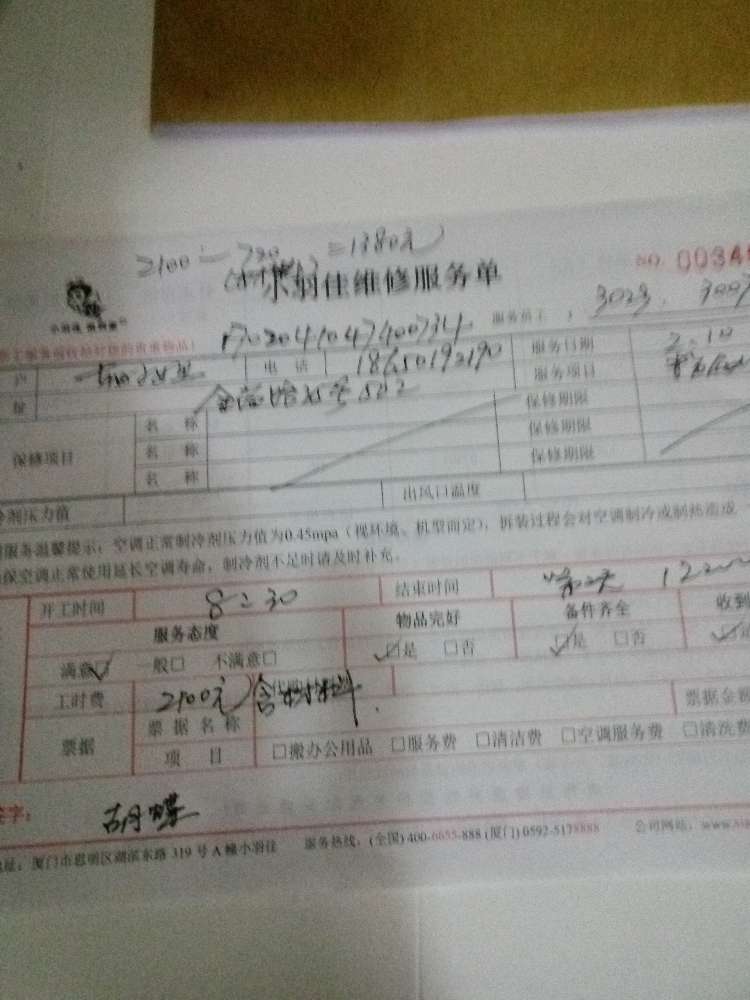 2100 - 720 = 1380元
小羽佳维修服务单
NO. 0034
1702041047400734
服务员工: 3023. 300
电 话 18650192190 服务日期 2.10
服务项目
502 保修期限
名 称
保修项目 名 称 保修期限
名 称 保修期限
冷剂压力值 出风口温度
服务温馨提示:空调正常制冷剂压力值为0.45mpa(视环境、机型而定),拆装过程会对空调制冷或制热造成
保空调正常使用延长空调寿命,制冷剂不足时请及时补充。
开工时间 8:30 结束时间 第二天 12
服务态度 物品完好 备件齐全 收到
满意☑ 般□ 不满意□ ☑是 □否 ☑是 □否
工时费 2100元(含材料) 票据金额
票据 票据名称
项 目 □搬办公用品 □服务费 □清洁费 □空调服务费 □清洗费
签字: 胡蝶
地址:厦门市思明区湖滨东路 319 号 A 幢小羽佳 服务热线:(全国)400-6655-888 (厦门) 0592-5178888 公司网站:www.